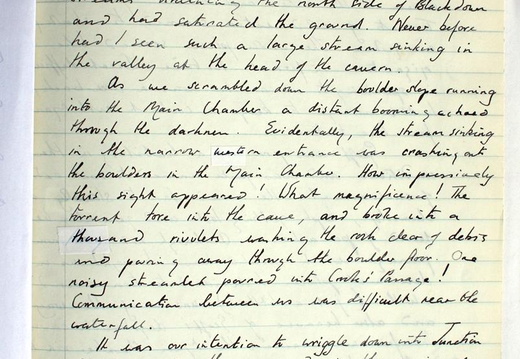 streams draining the north side of Blackdown
and had saturated the ground. Never before
had I seen such a large stream sinking in
the valley at the head of the cavern.
As we scrambled down the boulder slope running
into the Main Chamber a distant booming echoed
through the darkness. Evidentally, the stream sinking
in the narrow western entrance was crashing out
the boulders in the Main Chamber. How impressively
this sight appeared! What magnificence! The
torrent tore into the cave, and broke into a
thousand rivulets washing the rock clear of debris
and pouring away through the boulder floor. One
noisy streamlet poured into Crook's Passage!
Communication between us was difficult near the
waterfall.
It was our intention to wriggle down into Junction